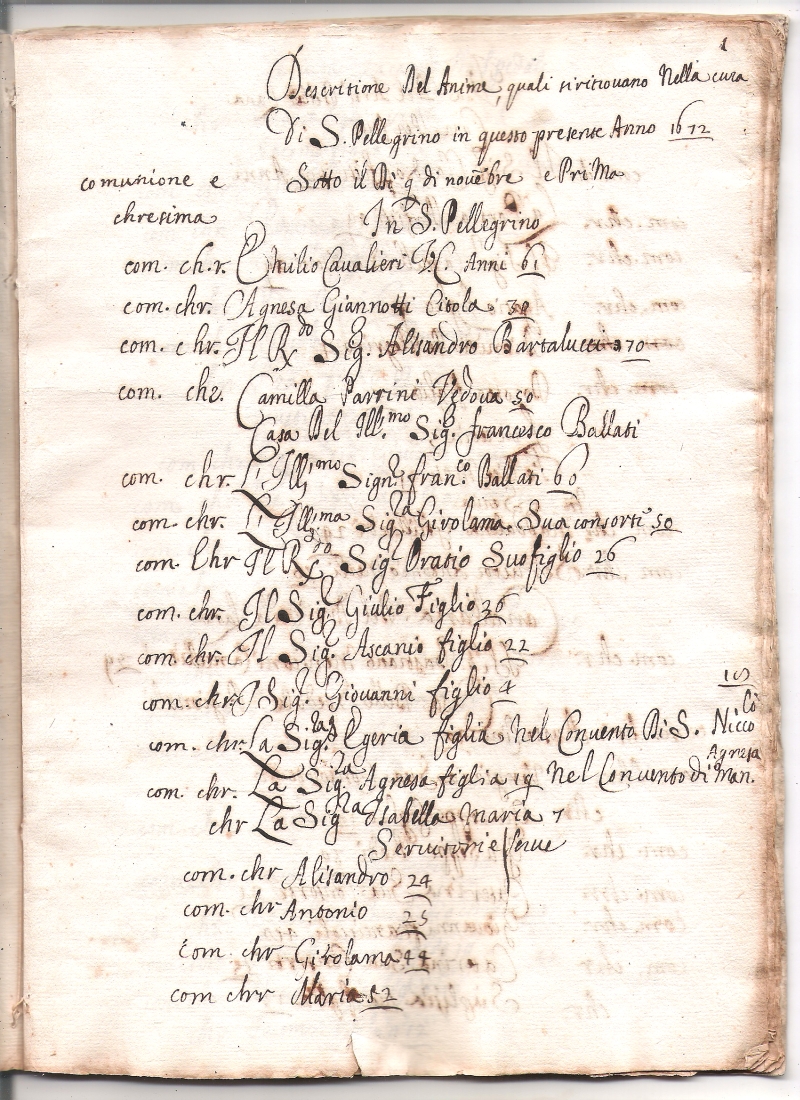 1
Descritione Del Anime, quali si ritrovano Nella cura
Di S. Pellegrino in questo presente Anno 1672
comunione e Sotto il Di 9 di novẽbre e PriMa
chresima In S. Pellegrino
com. ch.r. Emilio Cavalieri V.C. Anni 61
com. chr. Agnesa Giannotti Citola 30
com. chr. Il R.do Sig.r Alisandro Bartalucci 70
com. chr. Camilla Parrini Vedova 50
Casa Del Ill.mo Sig.r francesco Ballati
com. chr. L'Ill.mo Sign.r fran.co Ballati 60
com. chr. L'Ill.ma Sig.ra Girolama Sua consorti 50
com. Chr Il R.do Sig.r Oratio Suo figlio 26
com. chr. Il Sig.r Giulio Figlio 36
com. chr. Il Sig.r Ascanio figlio 22
com. chr. I Sig.r Giovanni figlio 4
com. chr. La Sig.ra Egeria figlia nel Convento Di S. Nicco
lò
com. chr. La Sig.ra Agnesa figlia 19 Nel Convento di man.
Agnesa
chr La Sig.ra Isabella Maria 7
Servitori e serve
com. chr Alisandro 24
com. chr Antonio 25
com. chr Girolama 44
com chr Maria 52